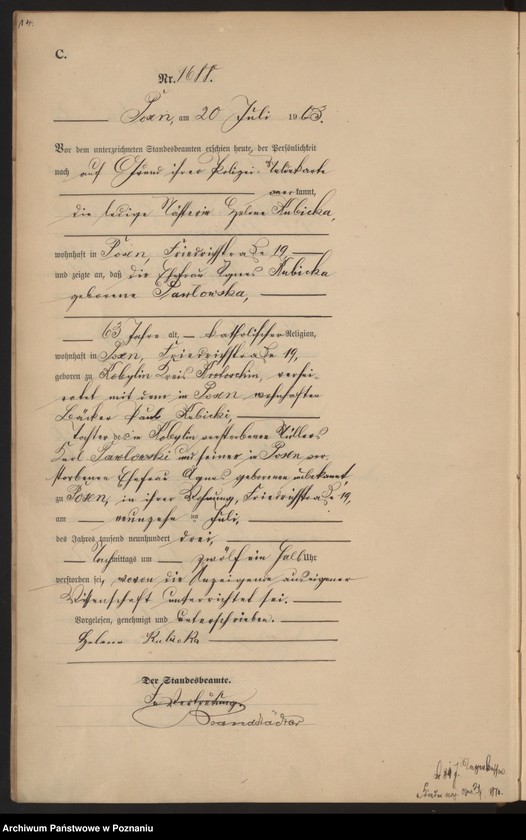 C.
Nr. 1688.
Posen, am 20 Juli 1903.
Vor dem unterzeichneten Standesbeamten erschien heute, der Persönlichkeit
nach auf Grund ihrer Polizei-Meldekarte
anerkannt,
die ledige Näherin Helene Kubicka,
wohnhaft in Posen, Friedrichstraße 19,
und zeigte an, daß die Ehefrau Agnes Kubicka
geborene Pawlowska,
63 Jahre alt, katholischer Religion,
wohnhaft in Posen, Friedrichstraße 19,
geboren zu Kobylin Kreis Krotoschin, verhei-
ratet mit dem in Posen wohnhaften
Bäcker Paul Kubicki,
Tochter des in Kobylin verstorbenen Müllers
Karl Pawlowski und seiner in Posen ver-
storbenen Ehefrau Agnes geborene unbekannt,
zu Posen, in ihrer Wohnung, Friedrichstraße 19,
am neunzehn ten Juli,
des Jahres tausend neunhundert drei,
Nachmittags um zwölf ein halb Uhr
verstorben sei, wovon die Anzeigende aus eigener
Wissenschaft unterrichtet sei.
Vorgelesen, genehmigt und unterschrieben.
Helene Kubicka
Der Standesbeamte.
In Vertretung.
Brandstädter
Archiwum Państwowe w Poznaniu